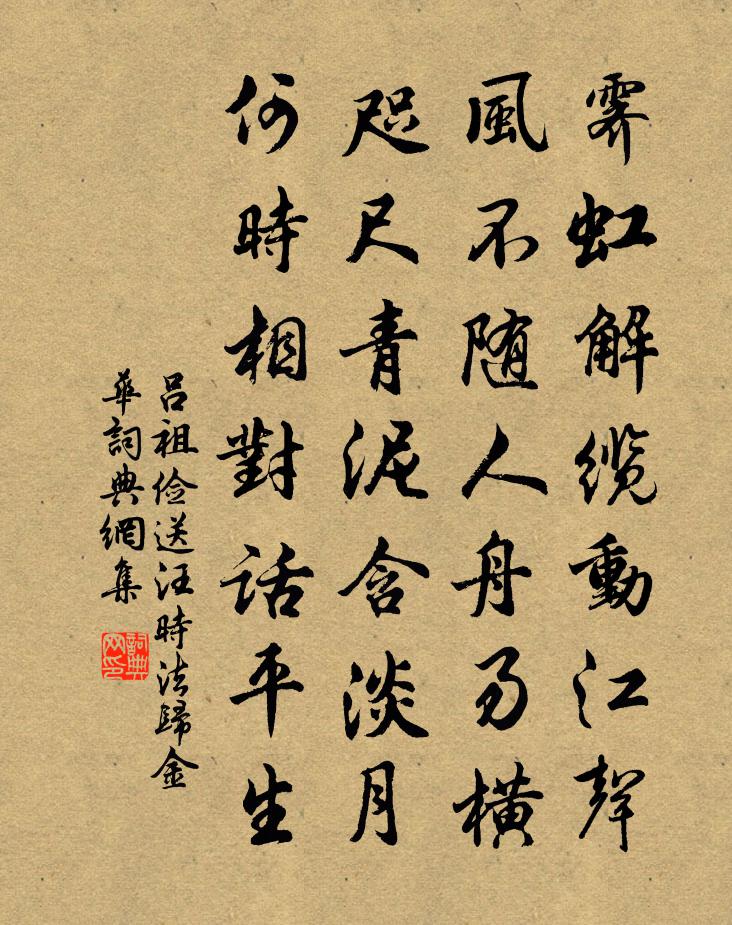 霽虹解缆動江聲
風不随人舟易橫
咫尺青泥含淡月
何時相對话平生
呂祖俭送汪時法歸金
華詞典網集
詞典
网印